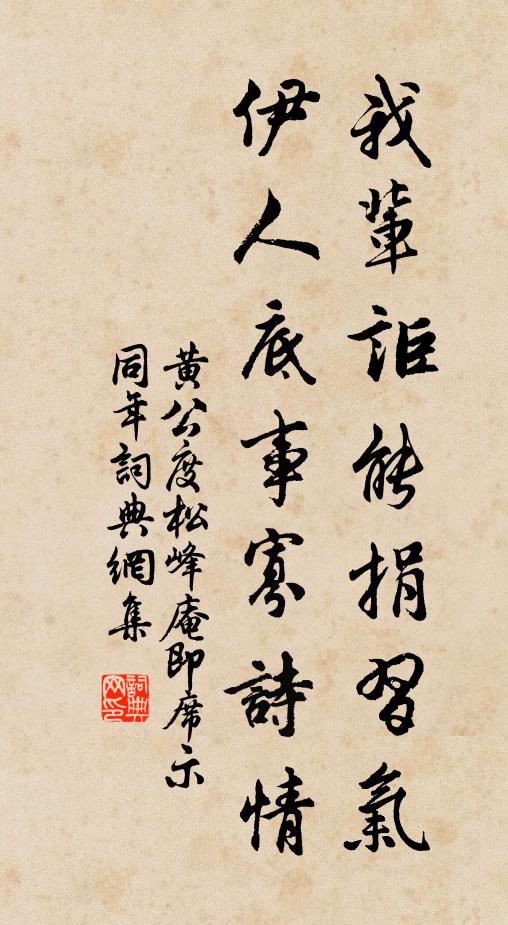 我輩詎能捐習氣
伊人底事寡詩情
黃公度松峰庵即席示
同年詞典網集
詞典網印